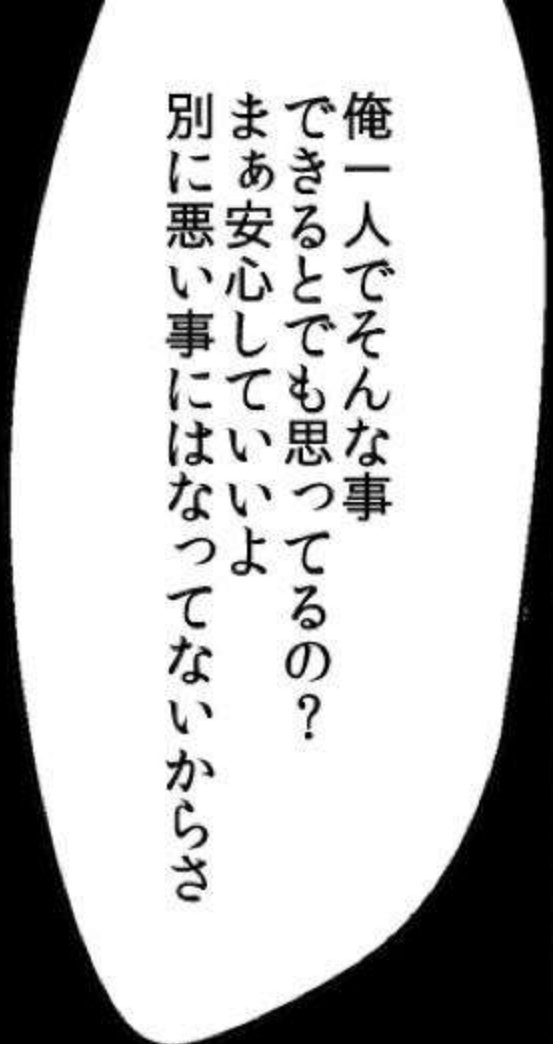 俺一人でそんな事
できるとでも思ってるの？
まぁ安心していいよ
別に悪い事にはなってないからさ